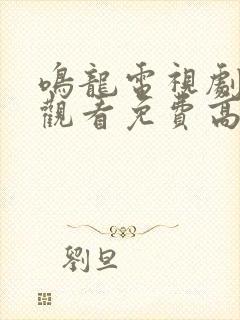 鳴龍電視劇
觀看免費高
劉旦